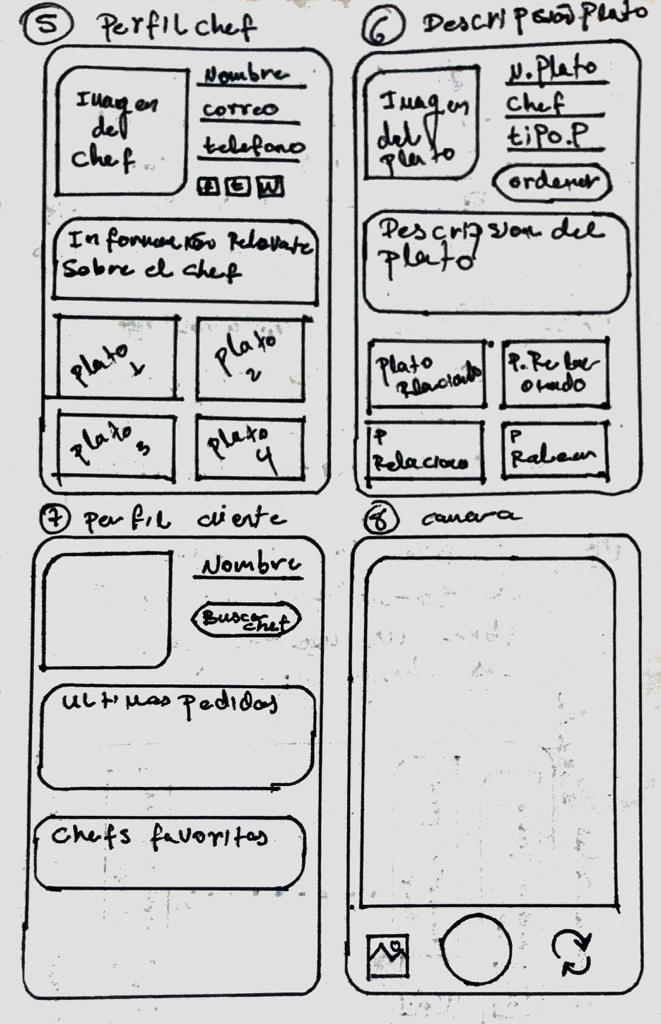 5 Perfil chef
Imagen
del
chef
Nombre
correo
telefono
f t W
Informacion Relevate
Sobre el chef
plato
1
plato
2
plato
3
plato
4
6 Descripsion plato
Imagen
del
plato
N.Plato
chef
tipo.P
ordener
Descripsion del
plato
Plato
P.
P
P
7 perfil cliente
Nombre
Buscar
chef
Ultimos pedidos
chefs favoritos
8 camara